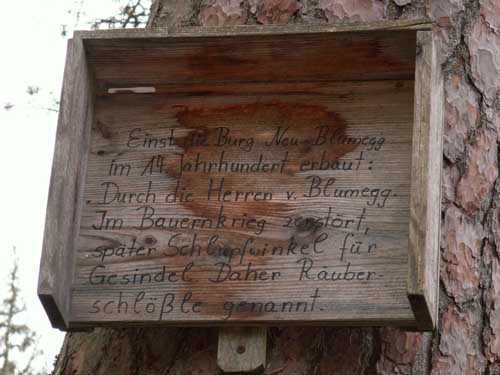 Einst die Burg Neu-Blumegg
im 14. Jahrhundert erbaut:
„Durch die Herren v. Blumegg.
Im Bauernkrieg zerstört,
später Schlupfwinkel für
Gesindel Daher Räuber-
schlößle genannt.